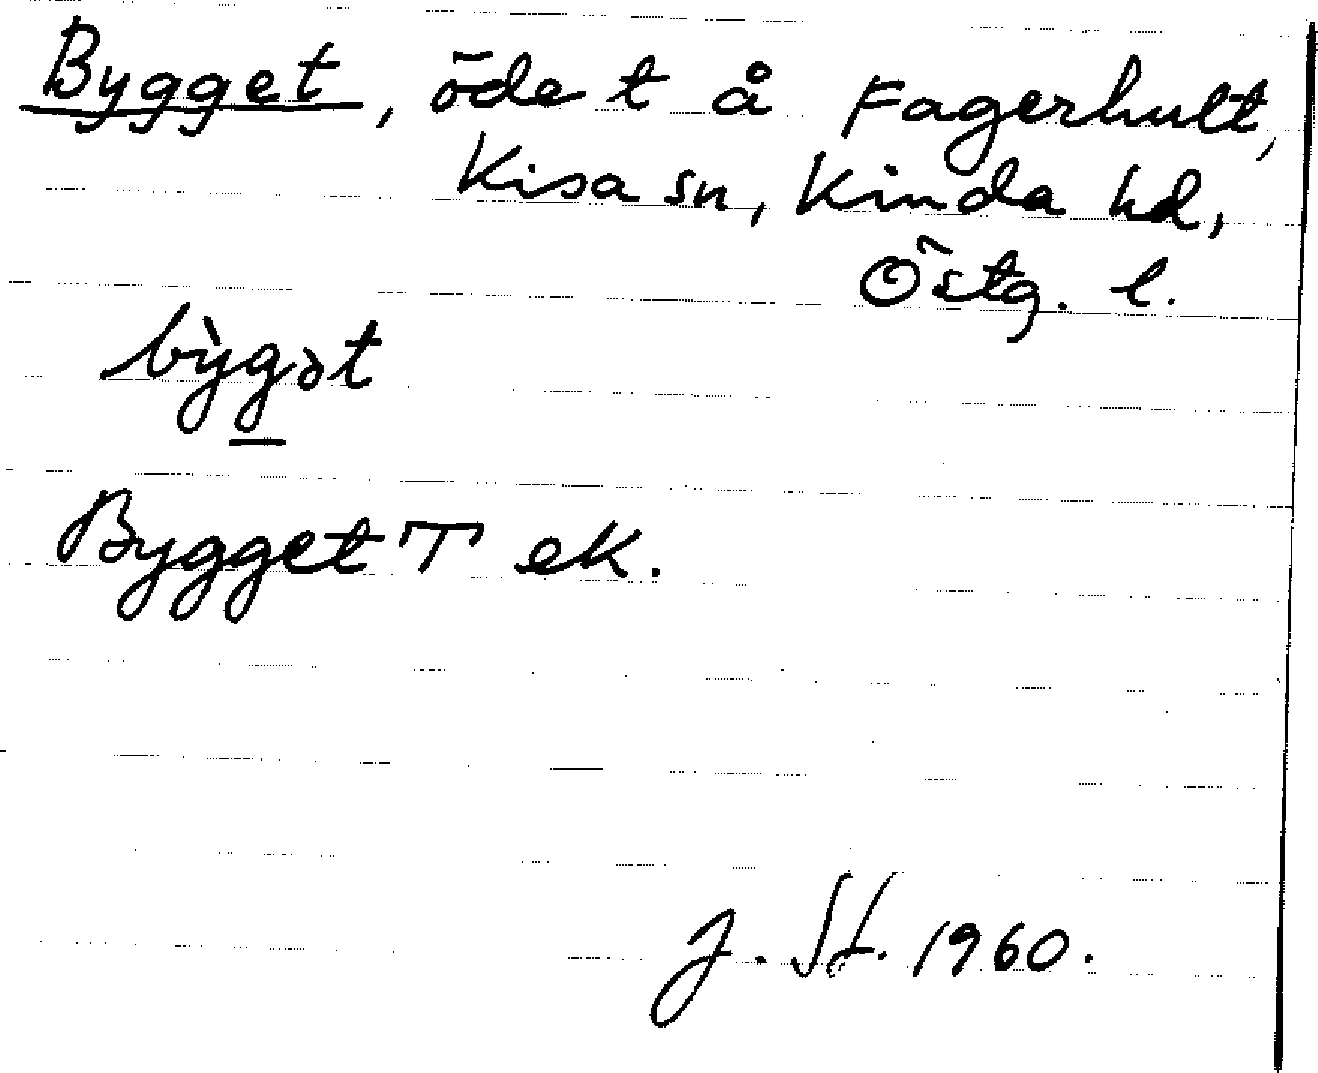 Bygget, öde t å Fagerhult,
Kisa sn, Kinda hd,
Östg. l.
bỳg̲ət
Bygget T ek.
J. St. 1960.